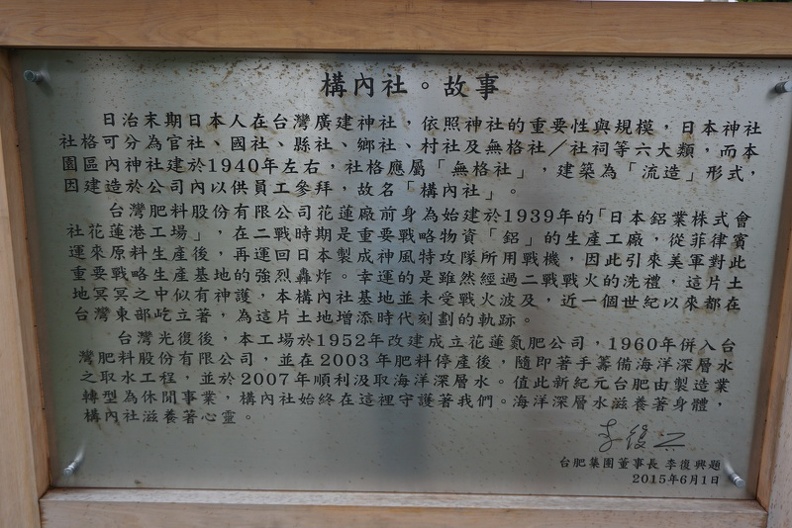 構內社。故事
日治末期日本人在台灣廣建神社，依照神社的重要性與規模，日本神社
社格可分為官社、國社、縣社、鄉社、村社及無格社／社祠等六大類，而本
園區內神社建於1940年左右，社格應屬「無格社」，建築為「流造」形式，
因建造於公司內以供員工參拜，故名「構內社」。
台灣肥料股份有限公司花蓮廠前身為始建於1939年的「日本鋁業株式會
社花蓮港工場」，在二戰時期是重要戰略物資「鋁」的生產工廠，從菲律賓
運來原料生產後，再運回日本製成神風特攻隊所用戰機，因此引來美軍對此
重要戰略生產基地的強烈轟炸。幸運的是雖然經過二戰戰火的洗禮，這片土
地冥冥之中似有神護，本構內社基地並未受戰火波及，近一個世紀以來都在
台灣東部屹立著，為這片土地增添時代刻劃的軌跡。
台灣光復後，本工場於1952年改建成立花蓮氮肥公司，1960年併入台
灣肥料股份有限公司，並在2003年肥料停產後，隨即著手籌備海洋深層水
之取水工程，並於2007年順利汲取海洋深層水。值此新紀元台肥由製造業
轉型為休閒事業，構內社始終在這裡守護著我們。海洋深層水滋養著身體，
構內社滋養著心靈。
李復興
台肥集團董事長 李復興題
2015年6月1日